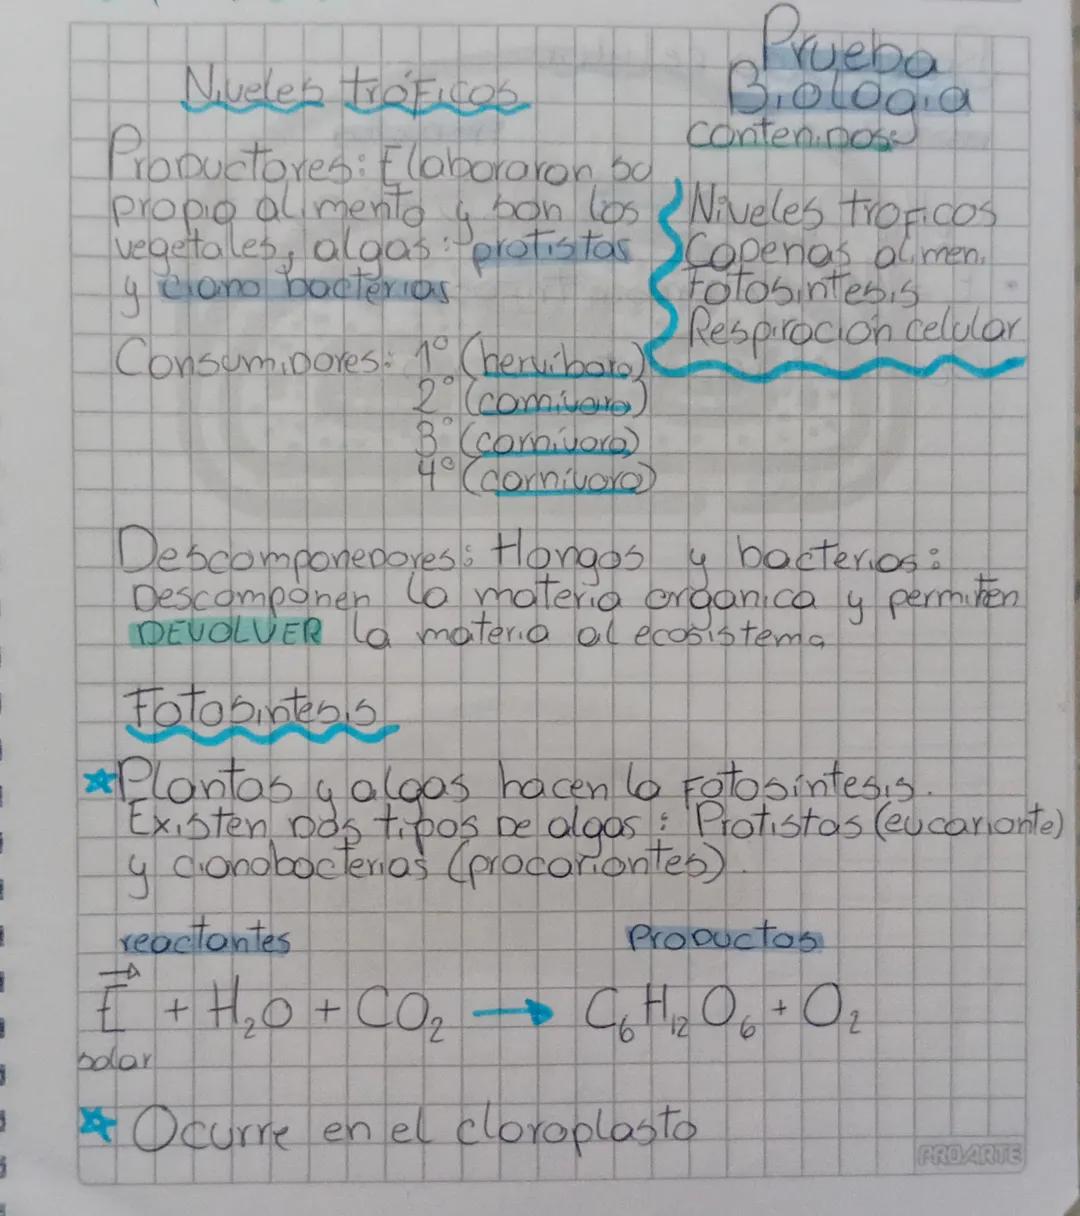 Prueba
Biología
contenidos:
Niveles tróficos
Niveles troficos
Cadenas alimen.
Fotosintesis
Respiración celular
Productores: Elaboraron su
propio alimento y son los
vegetales, algas: protistas
y ciano bacterias
Consumidores: 1° (hervíboro)
2° (carnívoro)
3° (carnívoro)
4° (carnívoro)
Descomponedores: Hongos y bacterias:
Descomponen la materia orgánica y permiten
DEVOLVER la materia al ecosistema
Fotosintesis
Plantas y algas hacen la fotosíntesis.
Existen dos tipos de algas: Protistas (eucarionte)
y cianobacterias (procariontes).
reactantes Productos
E + H₂O + CO₂ → C₆H₁₂O₆ + O₂
solar
Ocurre en el cloroplasto
PROARTE